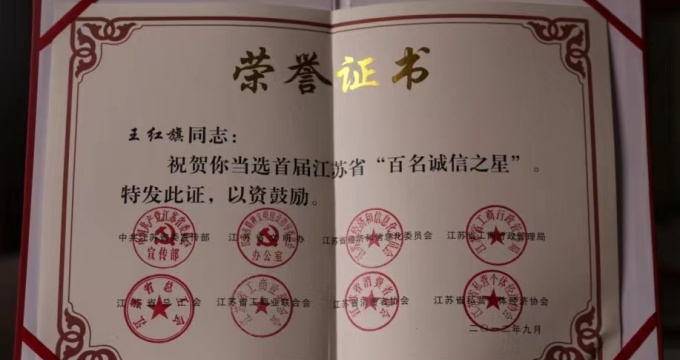 荣誉证书
王红旗同志：
祝贺你当选首届江苏省“百名诚信之星”。
特发此证，以资鼓励。
中共江苏省委宣传部 江苏省文明办 江苏省经济和信息化委员会 江苏省工商行政管理局
宣传部 办公室
江苏省总工会 江苏省工商业联合会 江苏省消费者协会 江苏省私营个体经济协会
二〇一二年九月